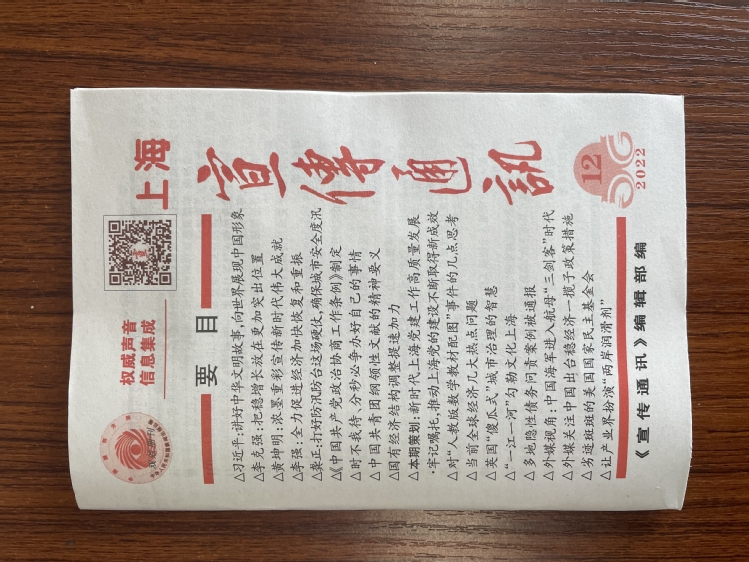 上海
宣傳通訊
12
2022
权威声音
信息集成
要目
△习近平:讲好中华文明故事,向世界展现中国形象
△李克强:把稳增长放在更加突出位置
△黄坤明:浓墨重彩宣传新时代伟大成就
△李强:全力促进经济加快恢复和重振
△龚正:打好防汛防台这场硬仗,确保城市安全度汛
△《中国共产党政治协商工作条例》制定
△时不我待、分秒必争办好自己的事情
△中国共青团纲领性文献的精神要义
△国有经济结构调整提速加力
△本期策划:新时代上海党建工作高质量发展
·牢记嘱托,推动上海党的建设不断取得新成效
△对“人教版数学教材配图”事件的几点思考
△当前全球经济几大热点问题
△英国“傻瓜式”城市治理的智慧
△“一江一河”勾勒文化上海
△多地隐性债务问责案例被通报
△外媒视角:中国海军进入航母“三剑客”时代
△外媒关注中国出台稳经济一揽子政策措施
△劣迹斑斑的美国国家民主基金会
△让产业界扮演“两岸润滑剂”
《宣传通讯》编辑部编